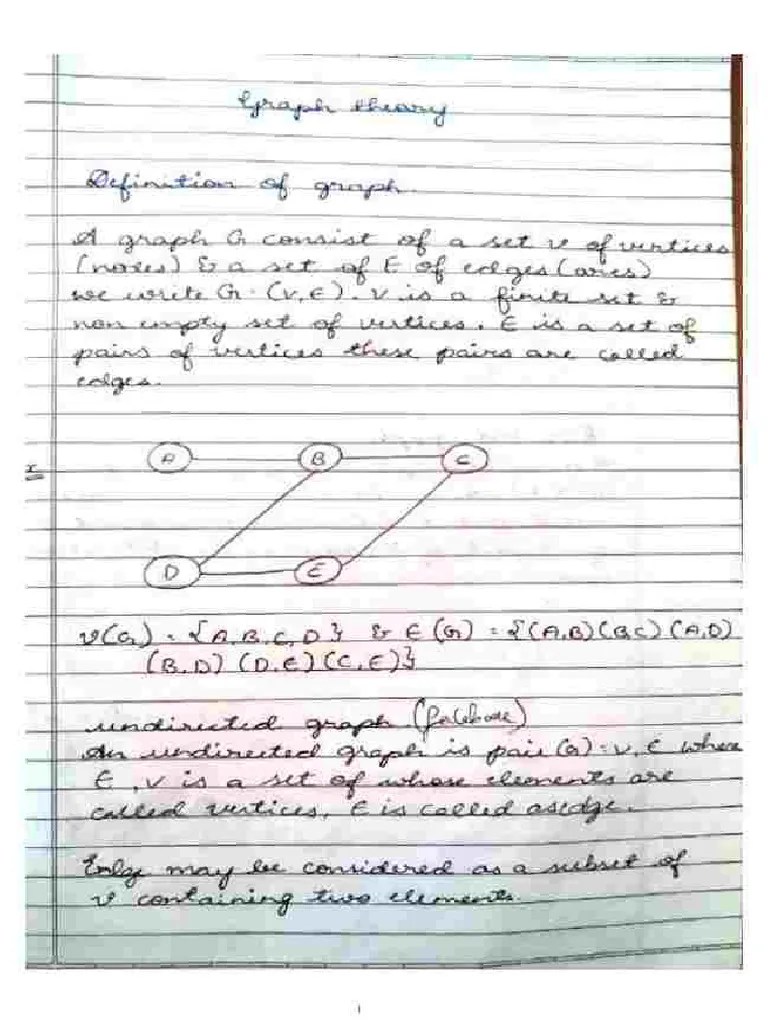 Graph theory
Definition of graph.
A graph G consist of a set v of vertices
(nodes) & a set of E of edges (arcs)
we write G = (V, E). V is a finite set &
non empty set of vertices. E is a set of
pairs of vertices these pairs are called
edges.
A B C
D E
V(G) = {A, B, C, D} & E(G) = {(A,B) (B,C) (A,D)
(B,D) (D,E) (C,E)}
undirected graph (facebook)
An undirected graph is pair (G) = V, E where
E, V is a set of whose elements are
called vertices. E is called as edge.
Edge may be considered as a subset of
v containing two elements.
1